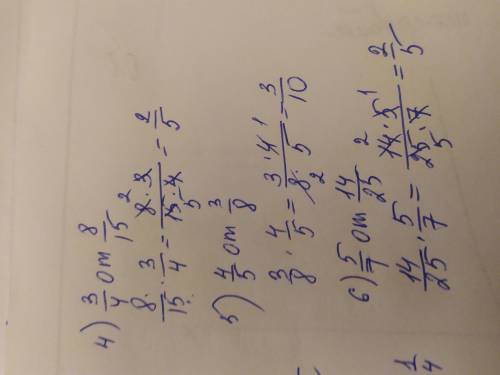 4) 3/4 от 8/15
8/15 · 3/4 = 8·3/15·4 = 2/5
5) 4/5 от 3/8
3/8 · 4/5 = 3·4/8·5 = 3/10
6) 5/7 от 14/25
14/25 · 5/7 = 14·5/25·7 = 2/5
1/4